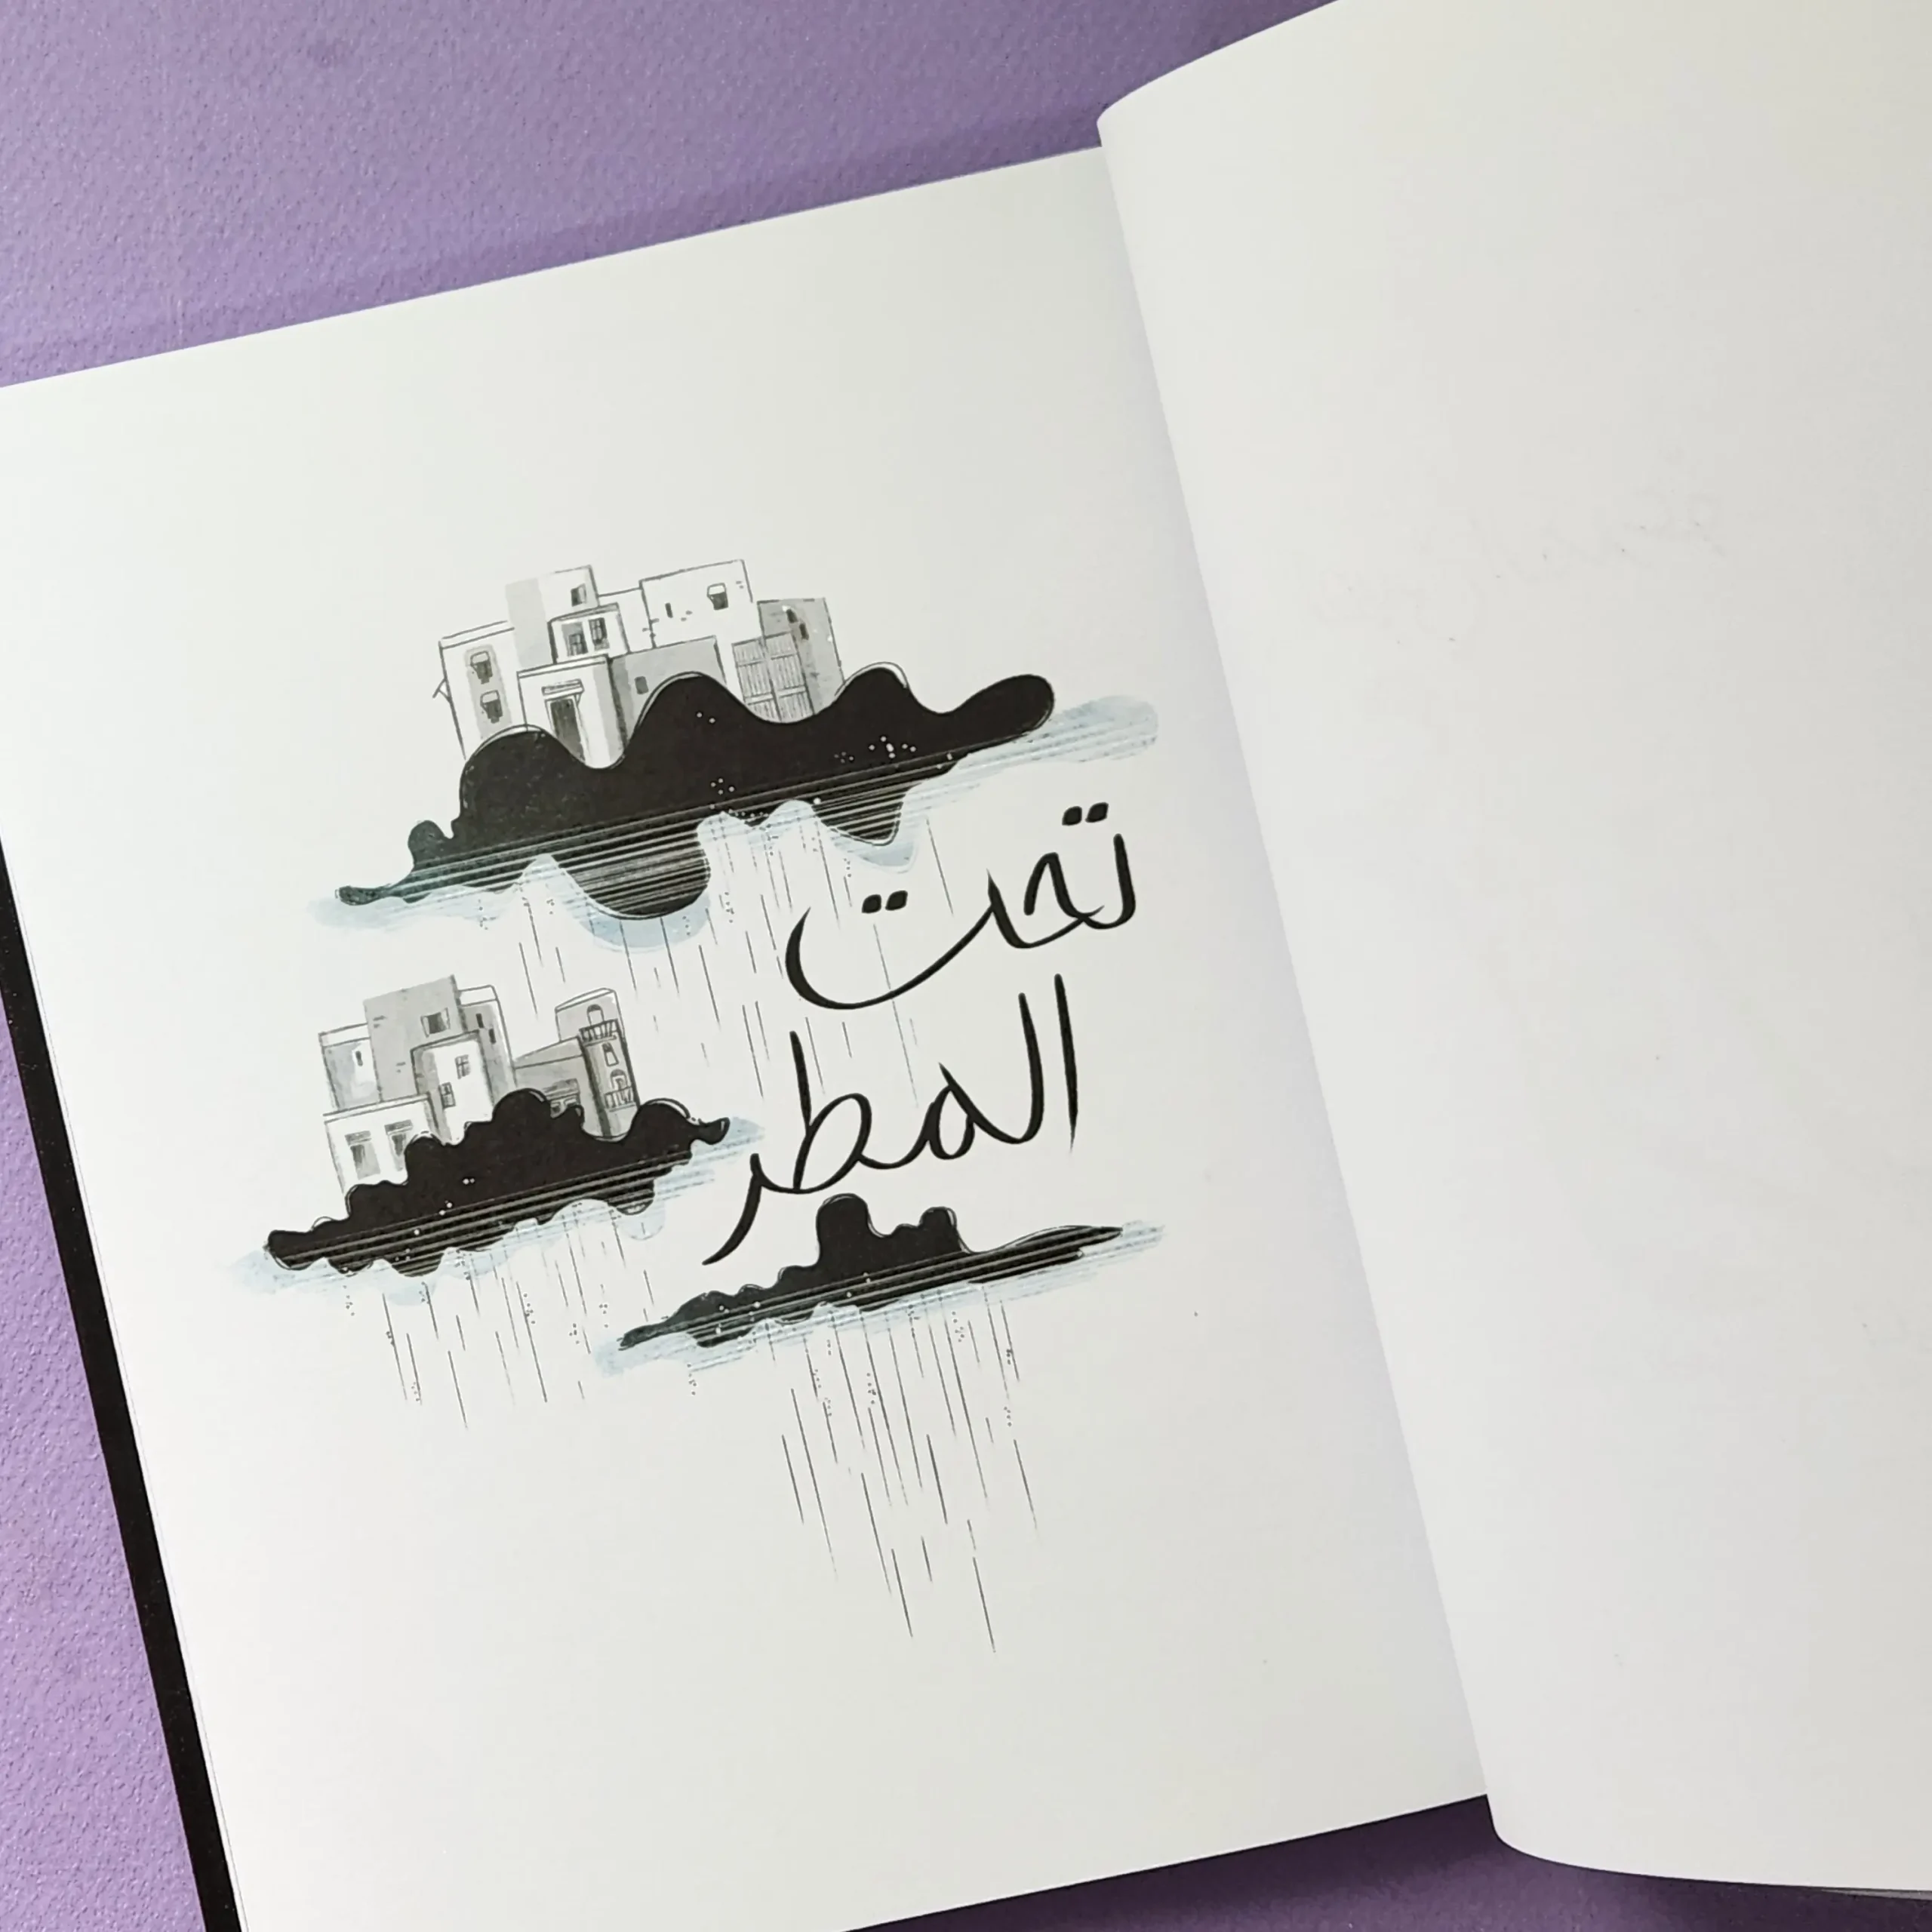 تحت
المطر